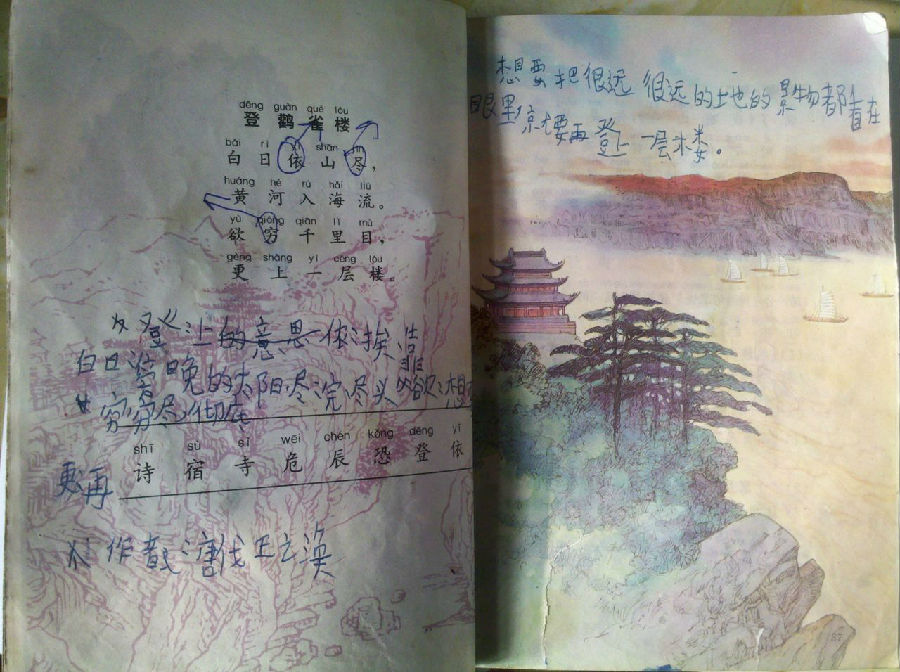 dēng guàn què lóu
登鹳雀楼
bái rì yī shān jìn
白日依山尽，
huáng hé rù hǎi liú
黄河入海流。
yù qióng qiān lǐ mù
欲穷千里目，
gèng shàng yì céng lóu
更上一层楼。
登:上的意思 依:挨 靠
白日:傍晚的太阳 尽:完 尽头 欲:想
穷:穷尽
shī sù sì wēi chén kǒng dēng yī
诗宿寺危辰恐登依
更:再
作者:唐代 王之涣
想要把很远很远的土地的景物都看在
眼里 就要再登上一层楼。